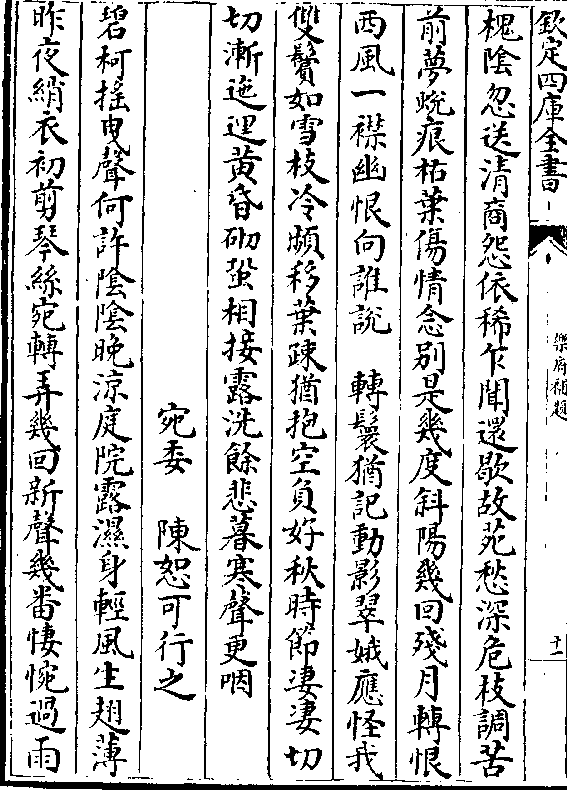 欽定四庫全書
樂府補題
十一
槐陰忽送清商怨依稀乍聞還歇故苑愁深危枝調苦
前夢蛻痕枯葉傷情念别是幾度斜陽幾回殘月轉恨
西風一襟幽恨向誰説　轉鬟猶記動影翠娥應怪我
雙鬢如雪枝冷頻移葉疎猶抱空負好秋時節淒淒切
切漸迤逦黄昏砌蛩相接露洗餘悲暮寒聲更咽
宛委　陳恕可行之
碧柯摇曳聲何許陰陰晚涼庭院露濕身輕風生翅薄
昨夜綃衣初剪琴絲宛轉弄幾回新聲幾番悽惋過雨